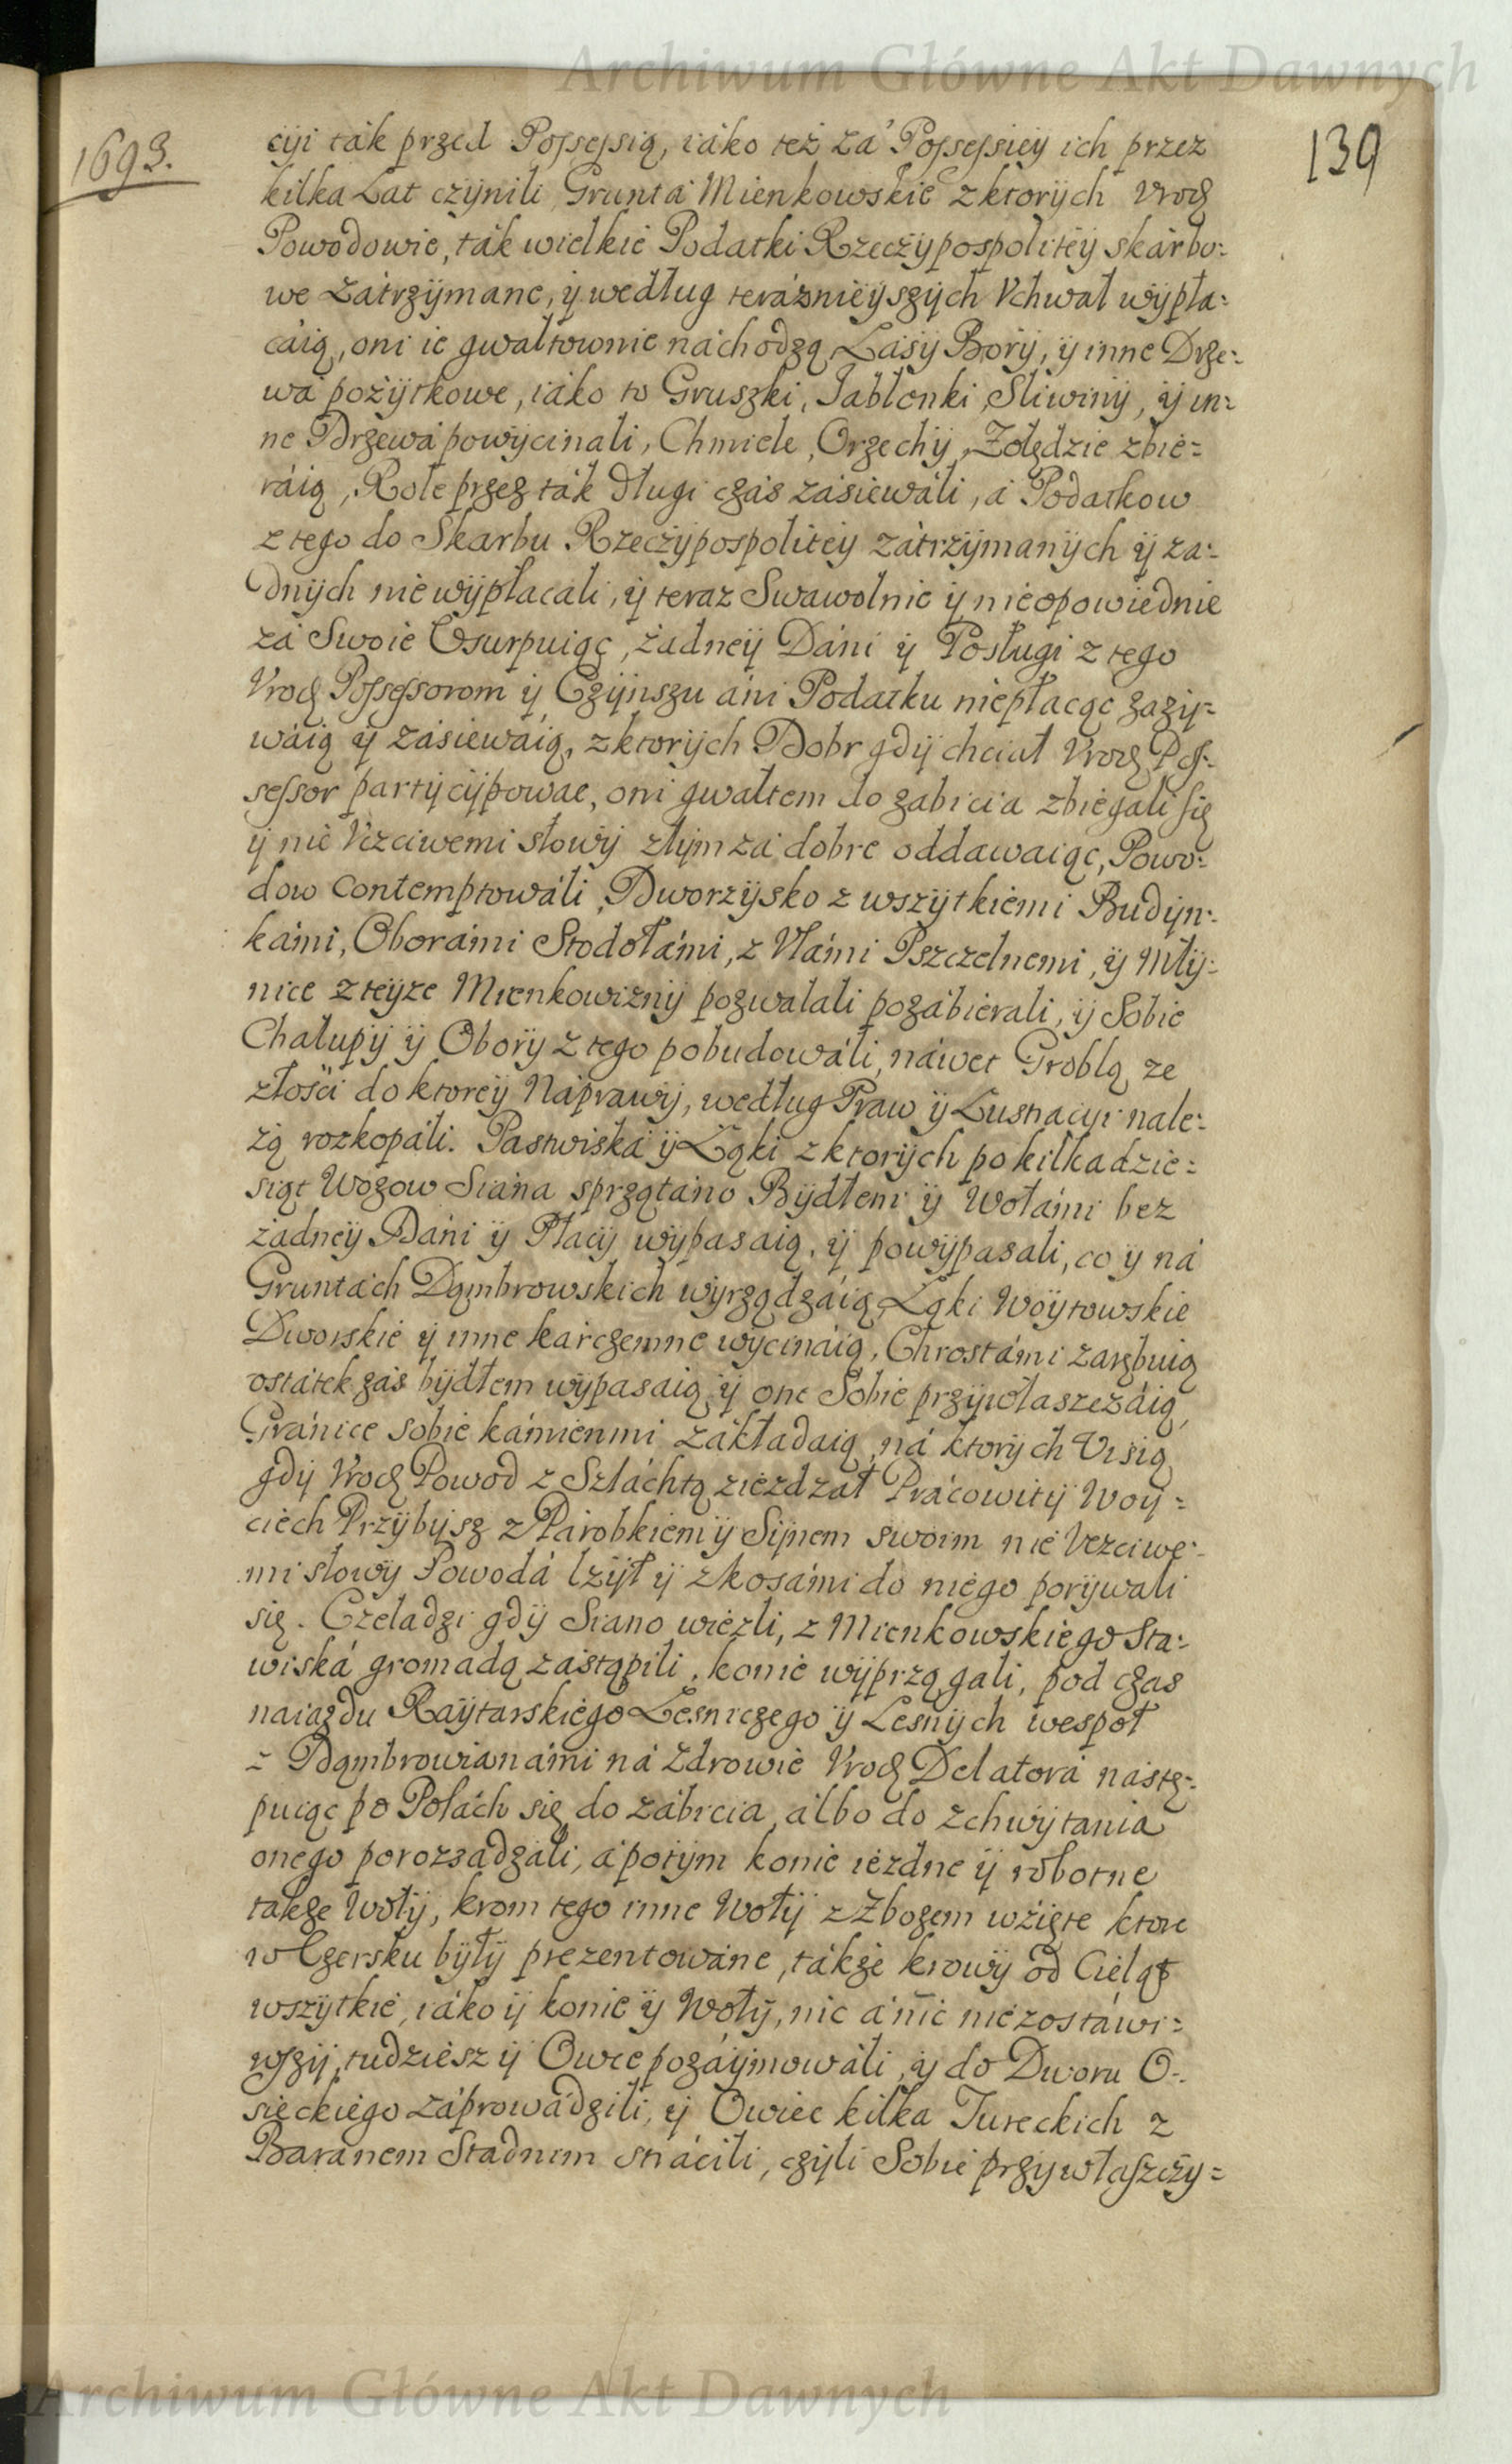 Archiwum Główne Akt Dawnych
1693.
139
cyi ták przed Possessią, iáko też zá Possessiey ich przez
kilka Lat czÿnili, Gruntá Mienkowskie z ktorÿch Vrodz
Powodowie, ták wielkie Podatki Rzeczÿpospolitéÿ skárbo-
we zátrzÿmane, ÿ według teráznieÿszÿch Vchwał wÿpła-
cáią, oni ie gwałtownie náchodzą, Lasÿ Borÿ, ÿ inne Drze-
wá pożÿtkowe, iáko to Gruszki, Jabłonki, Sliwinÿ, ÿ in-
ne Drzewá powÿcinali, Chmiele, Orzechÿ, Żołędzie zbie-
ráią, Role przez ták długi czás zásiewáli, á Podatkow
z tego do Skarbu Rzeczÿpospolitéÿ zátrzÿmanÿch ÿ za-
dnÿch nie wÿpłacali, ÿ teraz Swawolnie ÿ nieopowiednie
zá Swoie Vsurpuiąc, żadneÿ Dáni ÿ Posługi z tego
Vrodz Possessorom ÿ Czÿnszu áni Podatku niepłacąc zazÿ-
wáią ÿ zásiewáią, z ktorÿch Dobr gdÿ chciał Vrodz Pos-
sessor partÿcÿpowac, oni gwałtem do zabicia zbiegali się
ÿ nie Vczciwemi słowÿ złÿm zá dobre oddawaiąc, Powo-
dow contemptowáli, Dworzÿsko z wszÿtkiemi Budÿn-
kámi, Oborámi Stodołámi, z Vlámi Pszczelnemi, ÿ Młÿ-
nice z teÿze Mienkowiznÿ pozwalali pozábierali, ÿ Sobie
Chałupÿ ÿ Oborÿ z tego pobudowáli, náwet Groblą ze
złości do ktoreÿ Náprawÿ, według Praw ÿ Lustracÿi nale-
żą rozkopáli. Pastwiská ÿ Łąki z ktorÿch po kilkadzie-
siąt Wozow Siána sprzątano Bÿdłem ÿ Wołámi bez
żadneÿ Dáni ÿ Płacÿ wÿpasaią, ÿ powÿpasali, co ÿ ná
Gruntách Dąmbrowskich wÿrządzáią, Łąki Woÿtowskie
Dworskie ÿ inne karczemne wÿcináią, Chrostámi zarębuią
ostátek zás bÿdłem wÿpasaią, ÿ one Sobie przÿwłaszczáią,
Gránice sobie kámienmi zákładaią, ná ktorÿch Visią
gdÿ Vrodz Powod z Szláchtą ziezdzał Prácowitÿ Woÿ-
ciech Przÿbÿsz z Párobkiem ÿ Sÿnem swoim nie Vczciwe-
mi słowÿ Powodá lżÿł ÿ z kosámi do niego porÿwali
się. Czeladzi gdÿ Siano wiezli, z Mienkowskiego Sta-
wiská gromadą zástąpili, konie wÿprzągali, pod czas
naiazdu Raÿtarskiego Lesniczego ÿ Lesnÿch wespoł
z Dąmbrowianámi ná zdrowie Vrodz Delatorá nástę-
puiąc po Polách się do zábicia, álbo do zchwÿtania
onego porozsadzáli, á potÿm konie iezdne ÿ robotne
także Wołÿ, krom tego inne Wołÿ z Zbozem wzięte ktore
w Czersku bÿłÿ prezentowáne, tákże krowÿ od Cieląt
wszÿtkie, iáko ÿ konie ÿ Wołÿ, nic á nic niezostáwi-
wszÿ, tudziesz ÿ Owce pozáÿmowáli, ÿ do Dworu O-
sieckiego záprowádzili, ÿ Owiec kilka Tureckich z
Baránem Stadnim strácili, czÿli Sobie przÿwłaszczÿ-
Archiwum Główne Akt Dawnych